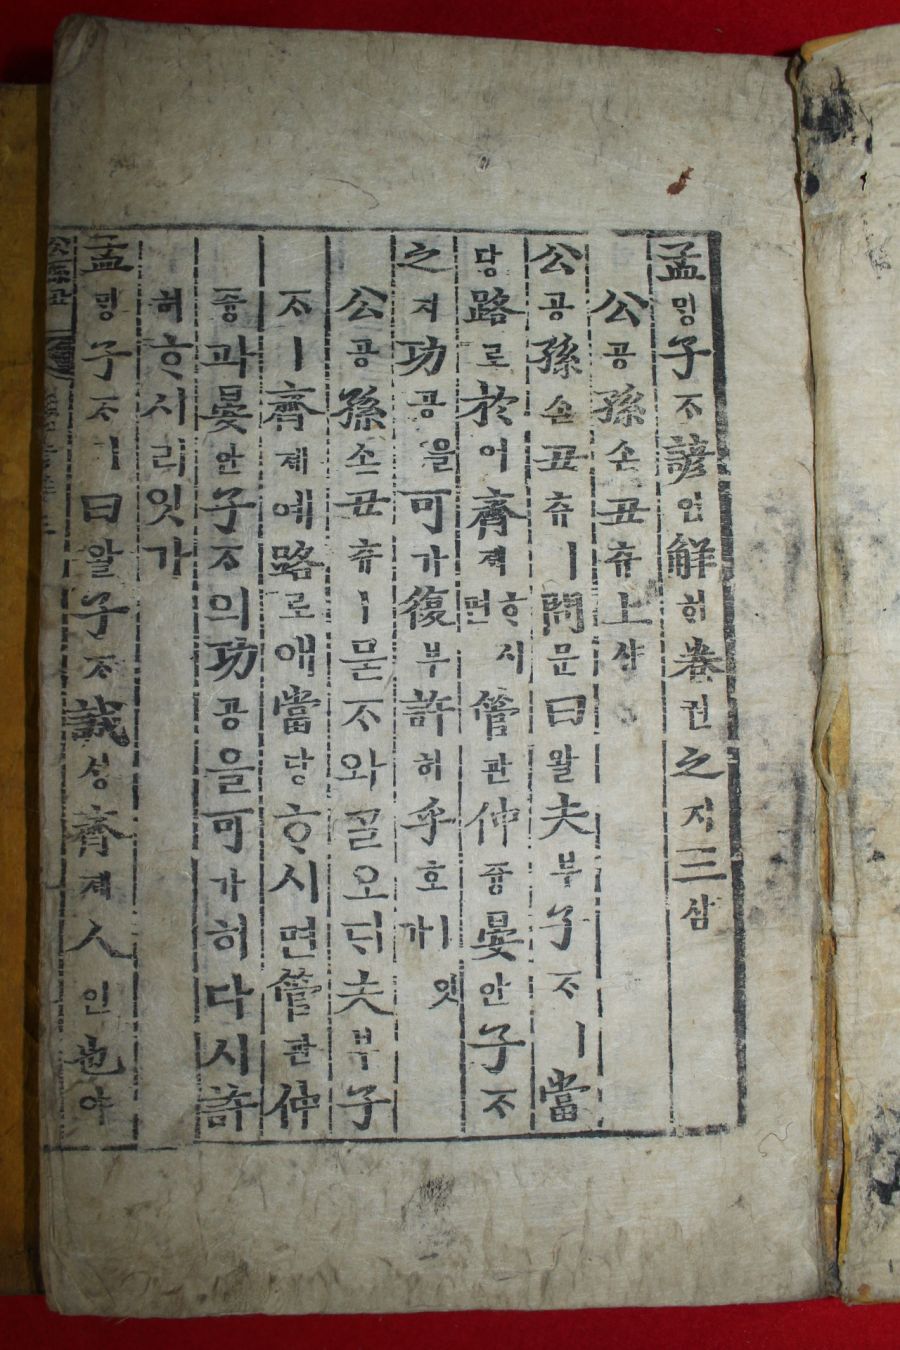 孟ᄆᆡᆼ子ᄌᆞ諺언解ᄒᆡ卷권之지三삼
公공孫손丑츄上샹
公공孫손丑츄ㅣ問문曰왈夫부子ᄌᆞㅣ當
당路로於어齊졔ᄒᆞ시면管관仲즁晏안子ᄌᆞ
之지功공을可가復부許허乎호ㅣ잇가
公공孫손丑츄ㅣ묻ᄌᆞ와ᄀᆞᆯ오ᄃᆡ夫부子
ᄌᆞㅣ齊졔예路로애當당ᄒᆞ시면管관仲
즁과晏안子ᄌᆞ의功공을可가히다시許
허ᄒᆞ시리잇가
孟ᄆᆡᆼ子ᄌᆞㅣ曰왈子ᄌᆞ誠셩齊졔人인也야